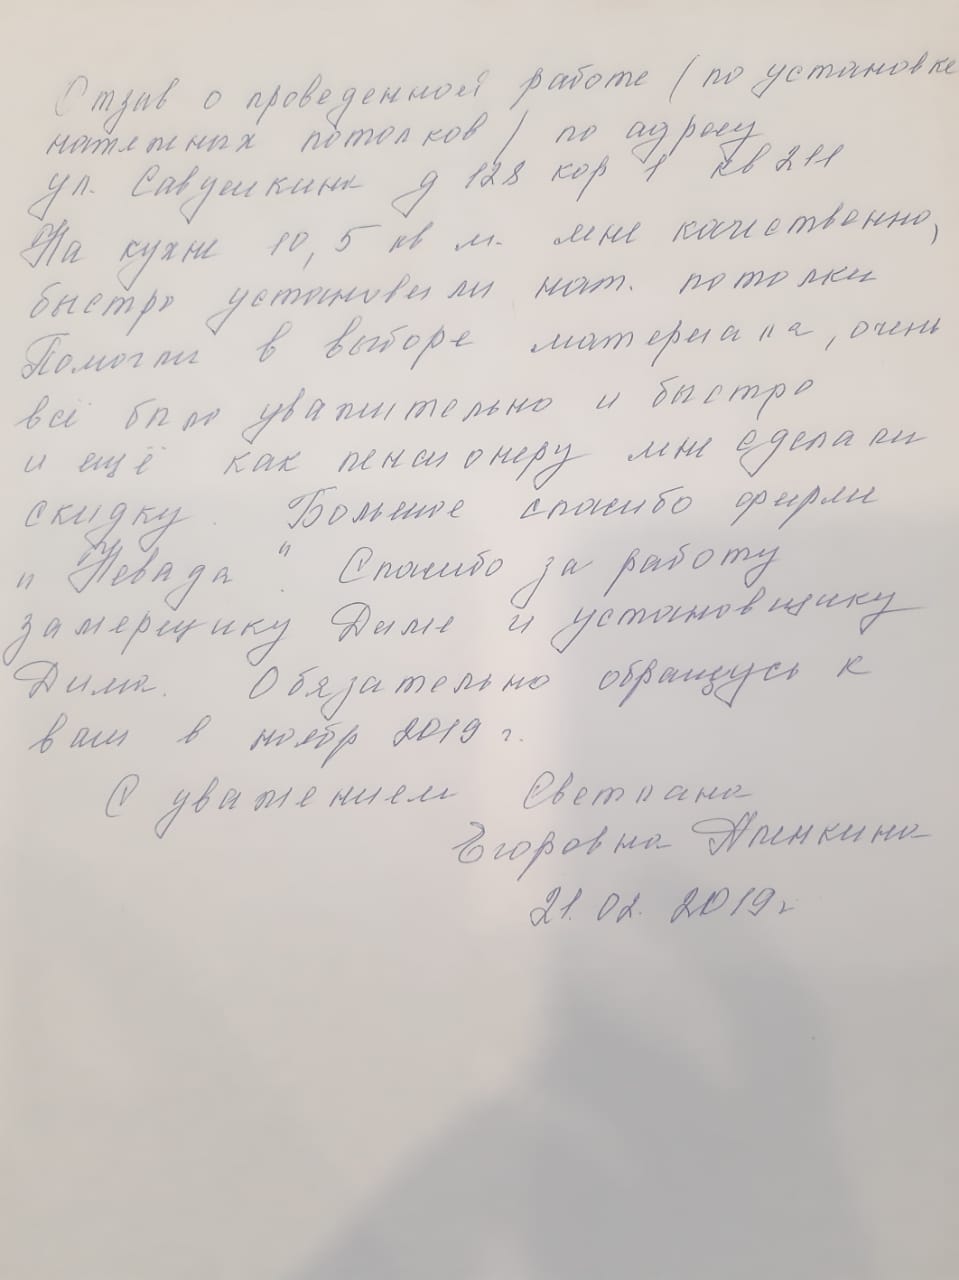 Отзыв о проведенной работе (по установке
натяжных потолков) по адресу
ул. Савушкина д 128 кор 1 кв 211
На кухне 10,5 кв м. мне качественно,
быстро установили нат. потолки
Помогли в выборе материала, очень
всё было уважительно и быстро
и ещё как пенсионеру мне сделали
скидку. Большое спасибо фирме
"Невада". Спасибо за работу
замерщику Диме и установщику
Дима. Обязательно обращусь к
вам в ноябр 2019 г.
С уважением Светлана
Егоровна Аленкина
21.02.2019г